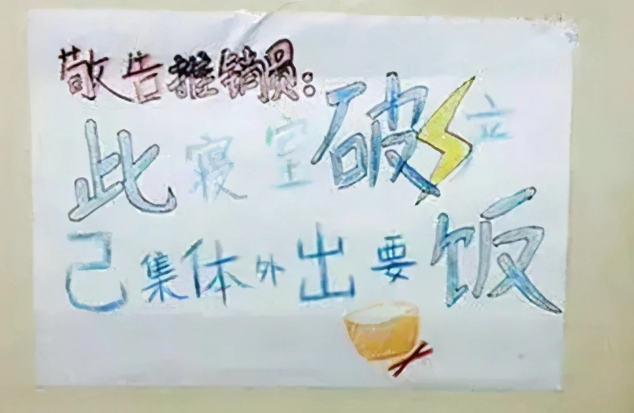 敬告推销员:
此寝室破产
己集体外出要饭